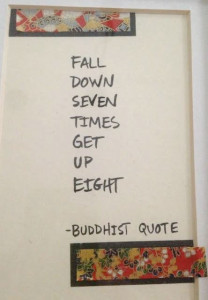 FALL
DOWN
SEVEN
TIMES
GET
UP
EIGHT
-BUDDHIST QUOTE